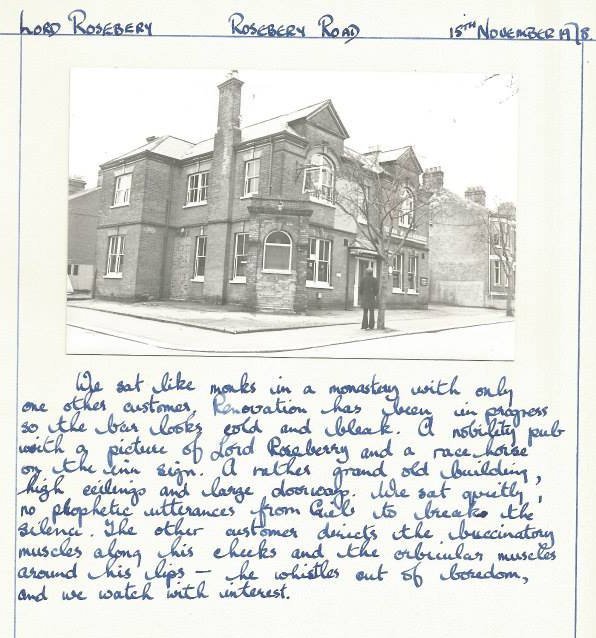 Lord Rosebery Rosebery Road 15th November 1978.
We sat like monks in a monastery with only
one other customer, Renovation has been in progress
so the bar looks cold and bleak. A nobility pub
with a picture of Lord Roseberry and a race horse
on the inn sign. A rather grand old building,
high ceilings and large doorways. We sat quietly,
no prophetic utterances from to breake the
silence. The other customer directs the buccinatory
muscles along his cheeks and the orbicular muscles
around his lips – he whistles out of boredom,
and we watch with interest.